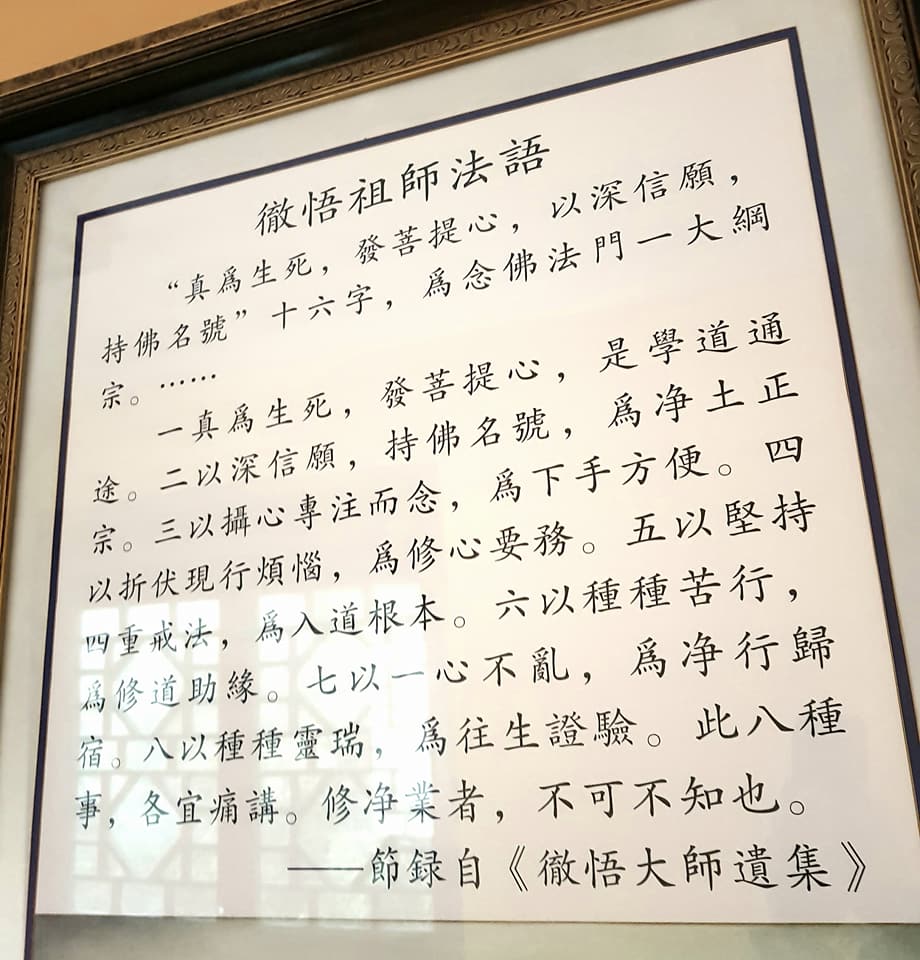 徹悟祖師法語
“真爲生死，發菩提心，以深信願，
持佛名號”十六字，爲念佛法門一大綱
宗。……
一真爲生死，發菩提心，是學道通
途。二以深信願，持佛名號，爲净土正
宗。三以攝心專注而念，爲下手方便。四
以折伏現行煩惱，爲修心要務。五以堅持
四重戒法，爲入道根本。六以種種苦行，
爲修道助緣。七以一心不亂，爲净行歸
宿。八以種種靈瑞，爲往生證驗。此八種
事，各宜痛講。修净業者，不可不知也。
——節録自《徹悟大師遺集》